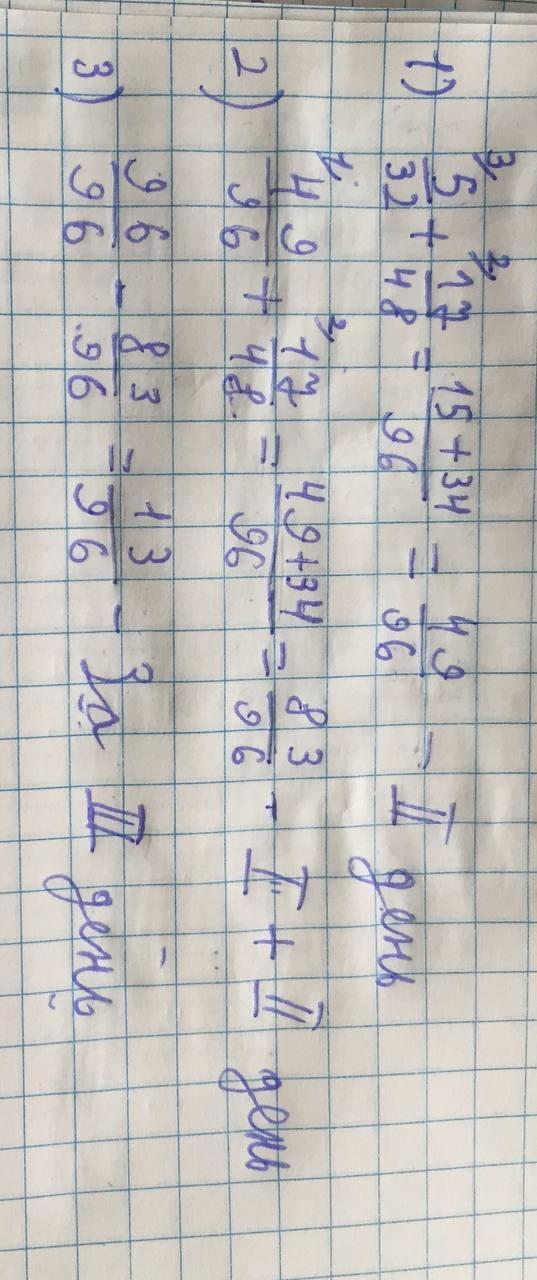 1) 5/32 + 17/48 = 15+34/96 = 49/96 - II день
2) 49/96 + 17/48 = 49+34/96 = 83/96 - I + II день
3) 96/96 - 83/96 = 13/96 - За III день